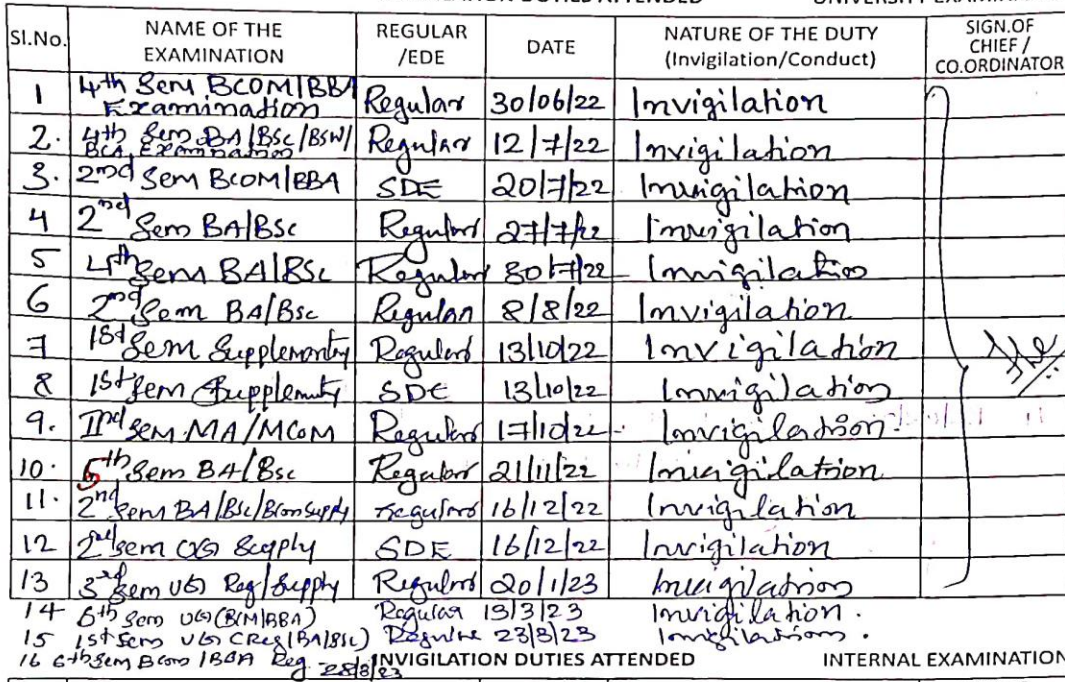 DUTIES ATTENDED UNIVERSITY EXAMINATION
Sl.No. NAME OF THE EXAMINATION REGULAR /EDE DATE NATURE OF THE DUTY (Invigilation/Conduct) SIGN.OF CHIEF / CO.ORDINATOR
1 4th Sem BCOM/BBA Examination Regular 30/06/22 Invigilation
2. 4th Sem BA/BSc/BSW/ BCA Examination Regular 12/7/22 Invigilation
3. 2nd Sem BCOM/BBA SDE 20/7/22 Invigilation
4 2nd Sem BA/BSc Regular 27/7/22 Invigilation
5 4th Sem BA/BSc Regular 30/7/22 Invigilation
6 2nd Sem BA/BSc Regular 8/8/22 Invigilation
7 1st Sem Supplementry Regular 13/10/22 Invigilation
8 1st Sem SDE 13/10/22 Invigilation
9. IInd Sem MA/MCOM Regular 17/10/22 Invigilation.
10. 5th Sem BA/BSc Regular 21/11/22 Invigilation
11. 2nd Sem BA/BSc/Bcom supply Regular 16/12/22 Invigilation
12 2nd Sem UG Supply SDE 16/12/22 Invigilation
13 3rd Sem UG Reg/Supply Regular 20/1/23 Invigilation
14 6th Sem UG Regular 13/3/23 Invigilation.
15 1st Sem UG CReg(BA/BSc) Regular 23/3/23 Invigilation.
16 6th Sem Bcom/BBA Reg 28/3/23
INVIGILATION DUTIES ATTENDED INTERNAL EXAMINATION